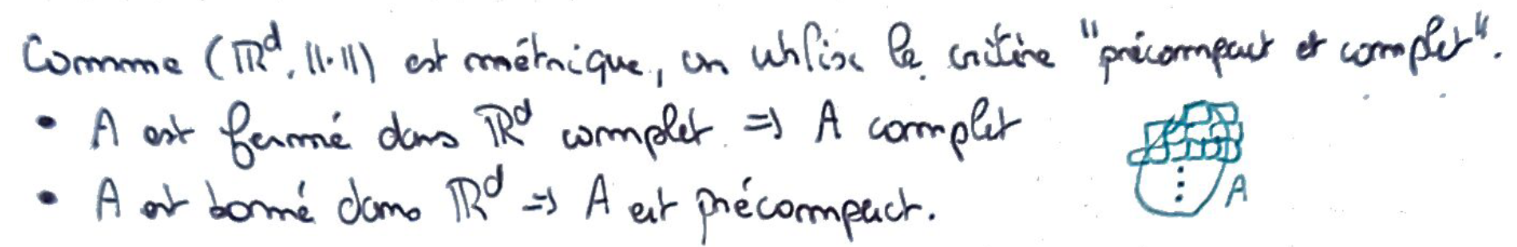 Comme (ℝᵈ, ||·||) est métrique, on utilise le critère "précompact et complet".
• A est fermé dans ℝᵈ complet ⇒ A complet
• A est borné dans ℝᵈ ⇒ A est précompact.
A